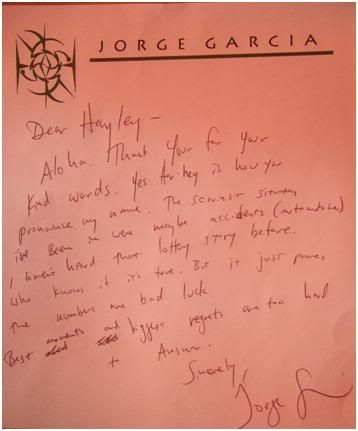 JORGE GARCIA
Dear Hayley –
Aloha. Thank your for your
kind words. Yes Hor-hey is how you
pronounce my name. The scariest situations
ive been in were maybe accidents (automobile)
I haven't heard that lottery story before.
who knows if its true. But it just proves
the numbers are bad luck.
Best moments and biggest regrets are too hard
to Answer.
Sincerely,
Jorge